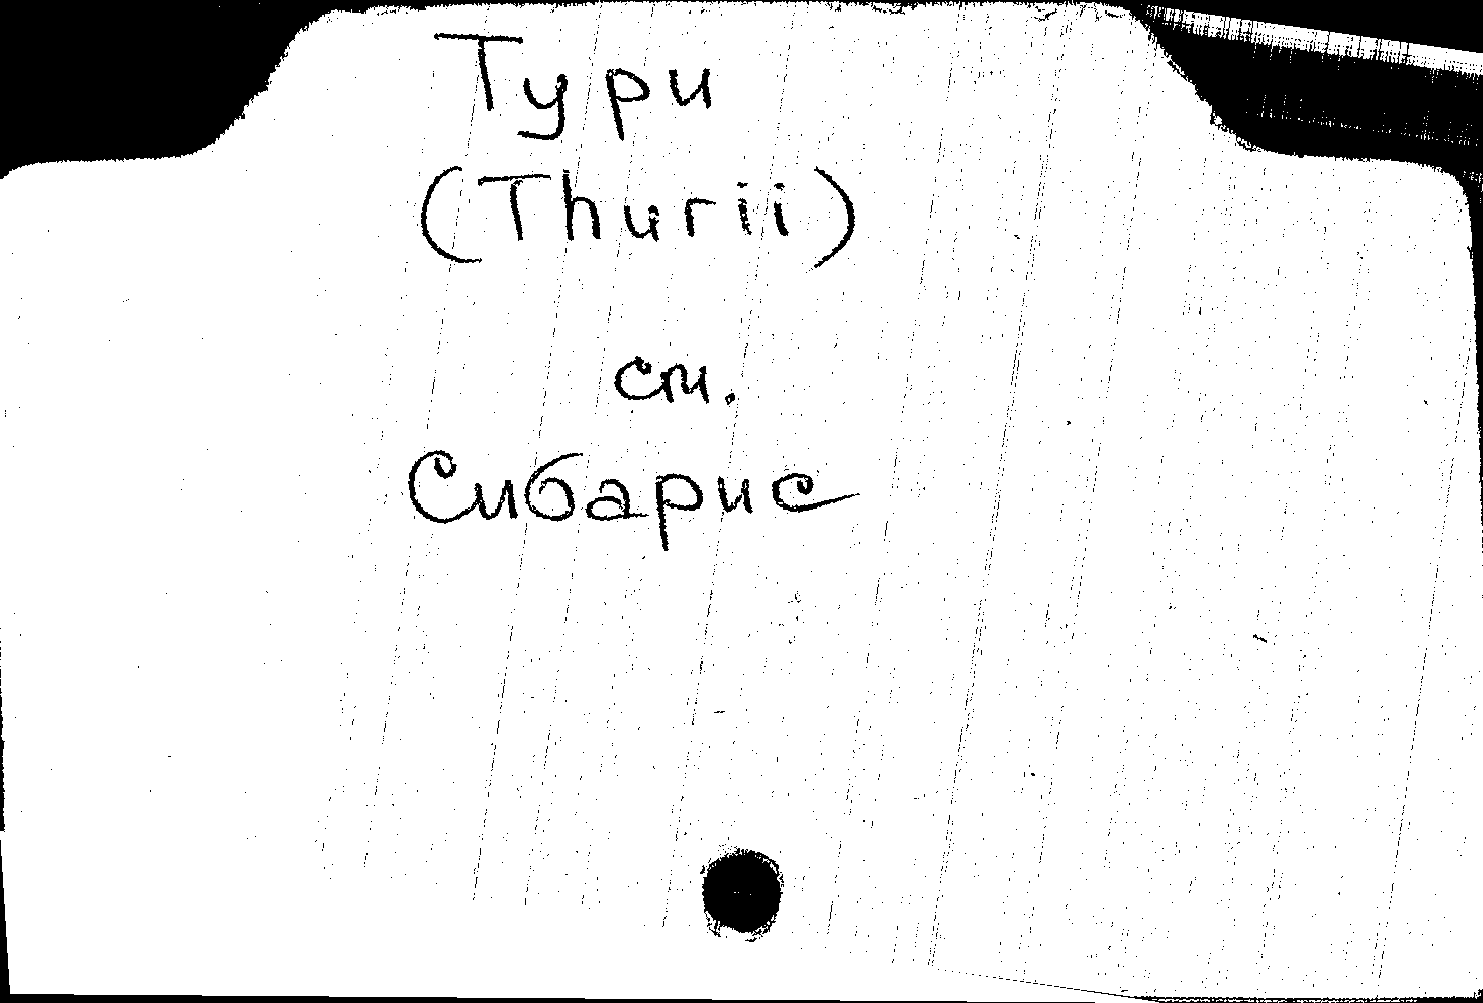 Тури
(Thurii)
см.
Сибарис